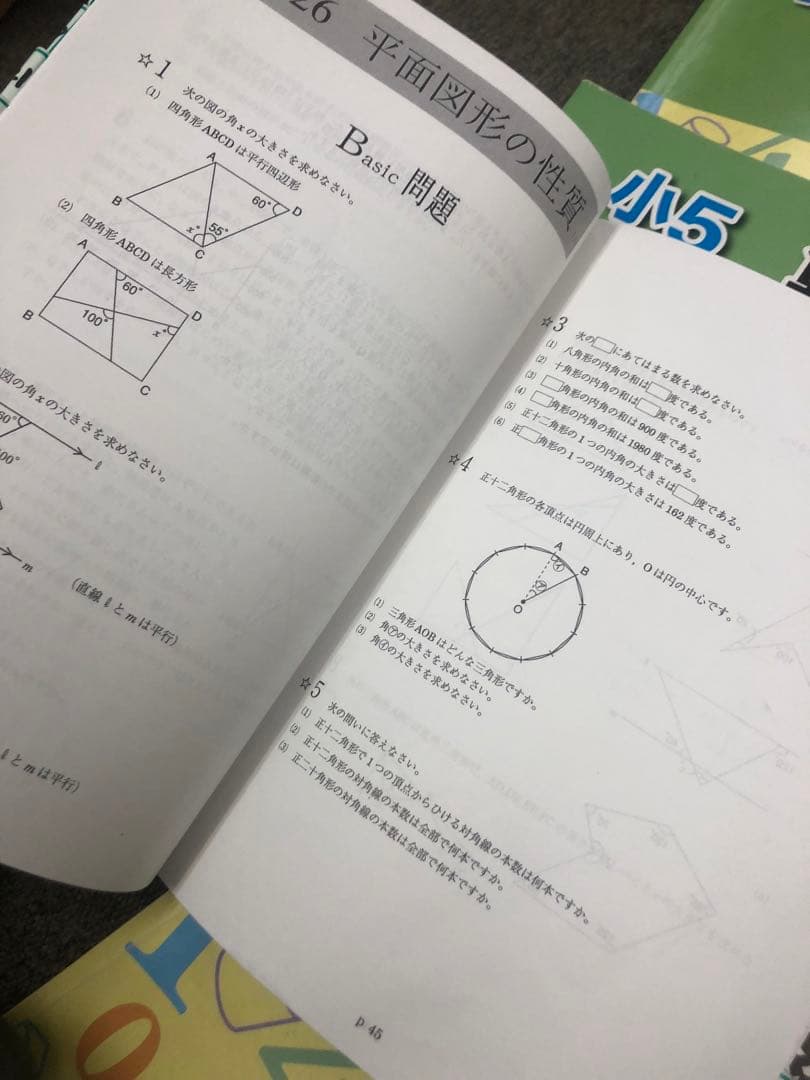 26 平面図形の性質
Basic 問題
☆1 次の図の角xの大きさを求めなさい。
(1) 四角形ABCDは平行四辺形
A
B
C
D
60°
x°
55°
(2) 四角形ABCDは長方形
A
B
C
D
60°
100°
x°
図の角xの大きさを求めなさい。
60°
ℓ
00°
m
(直線ℓとmは平行)
ℓとmは平行)
小5
☆3 次の□にあてはまる数を求めなさい。
(1) 八角形の内角の和は□度である。
(2) 十角形の内角の和は□度である。
(3) □角形の内角の和は900度である。
(4) □角形の内角の和は1980度である。
(5) 正十二角形の1つの内角の大きさは□度である。
(6) 正□角形の1つの内角の大きさは162度である。
☆4 正十二角形の各頂点は円周上にあり，Oは円の中心です。
A
B
イ
ア
O
(1) 三角形AOBはどんな三角形ですか。
(2) 角㋐の大きさを求めなさい。
(3) 角㋑の大きさを求めなさい。
☆5 次の問いに答えなさい。
(1) 正十二角形で1つの頂点からひける対角線の本数は何本ですか。
(2) 正十二角形の対角線の本数は全部で何本ですか。
(3) 正二十角形の対角線の本数は全部で何本ですか。
p 45